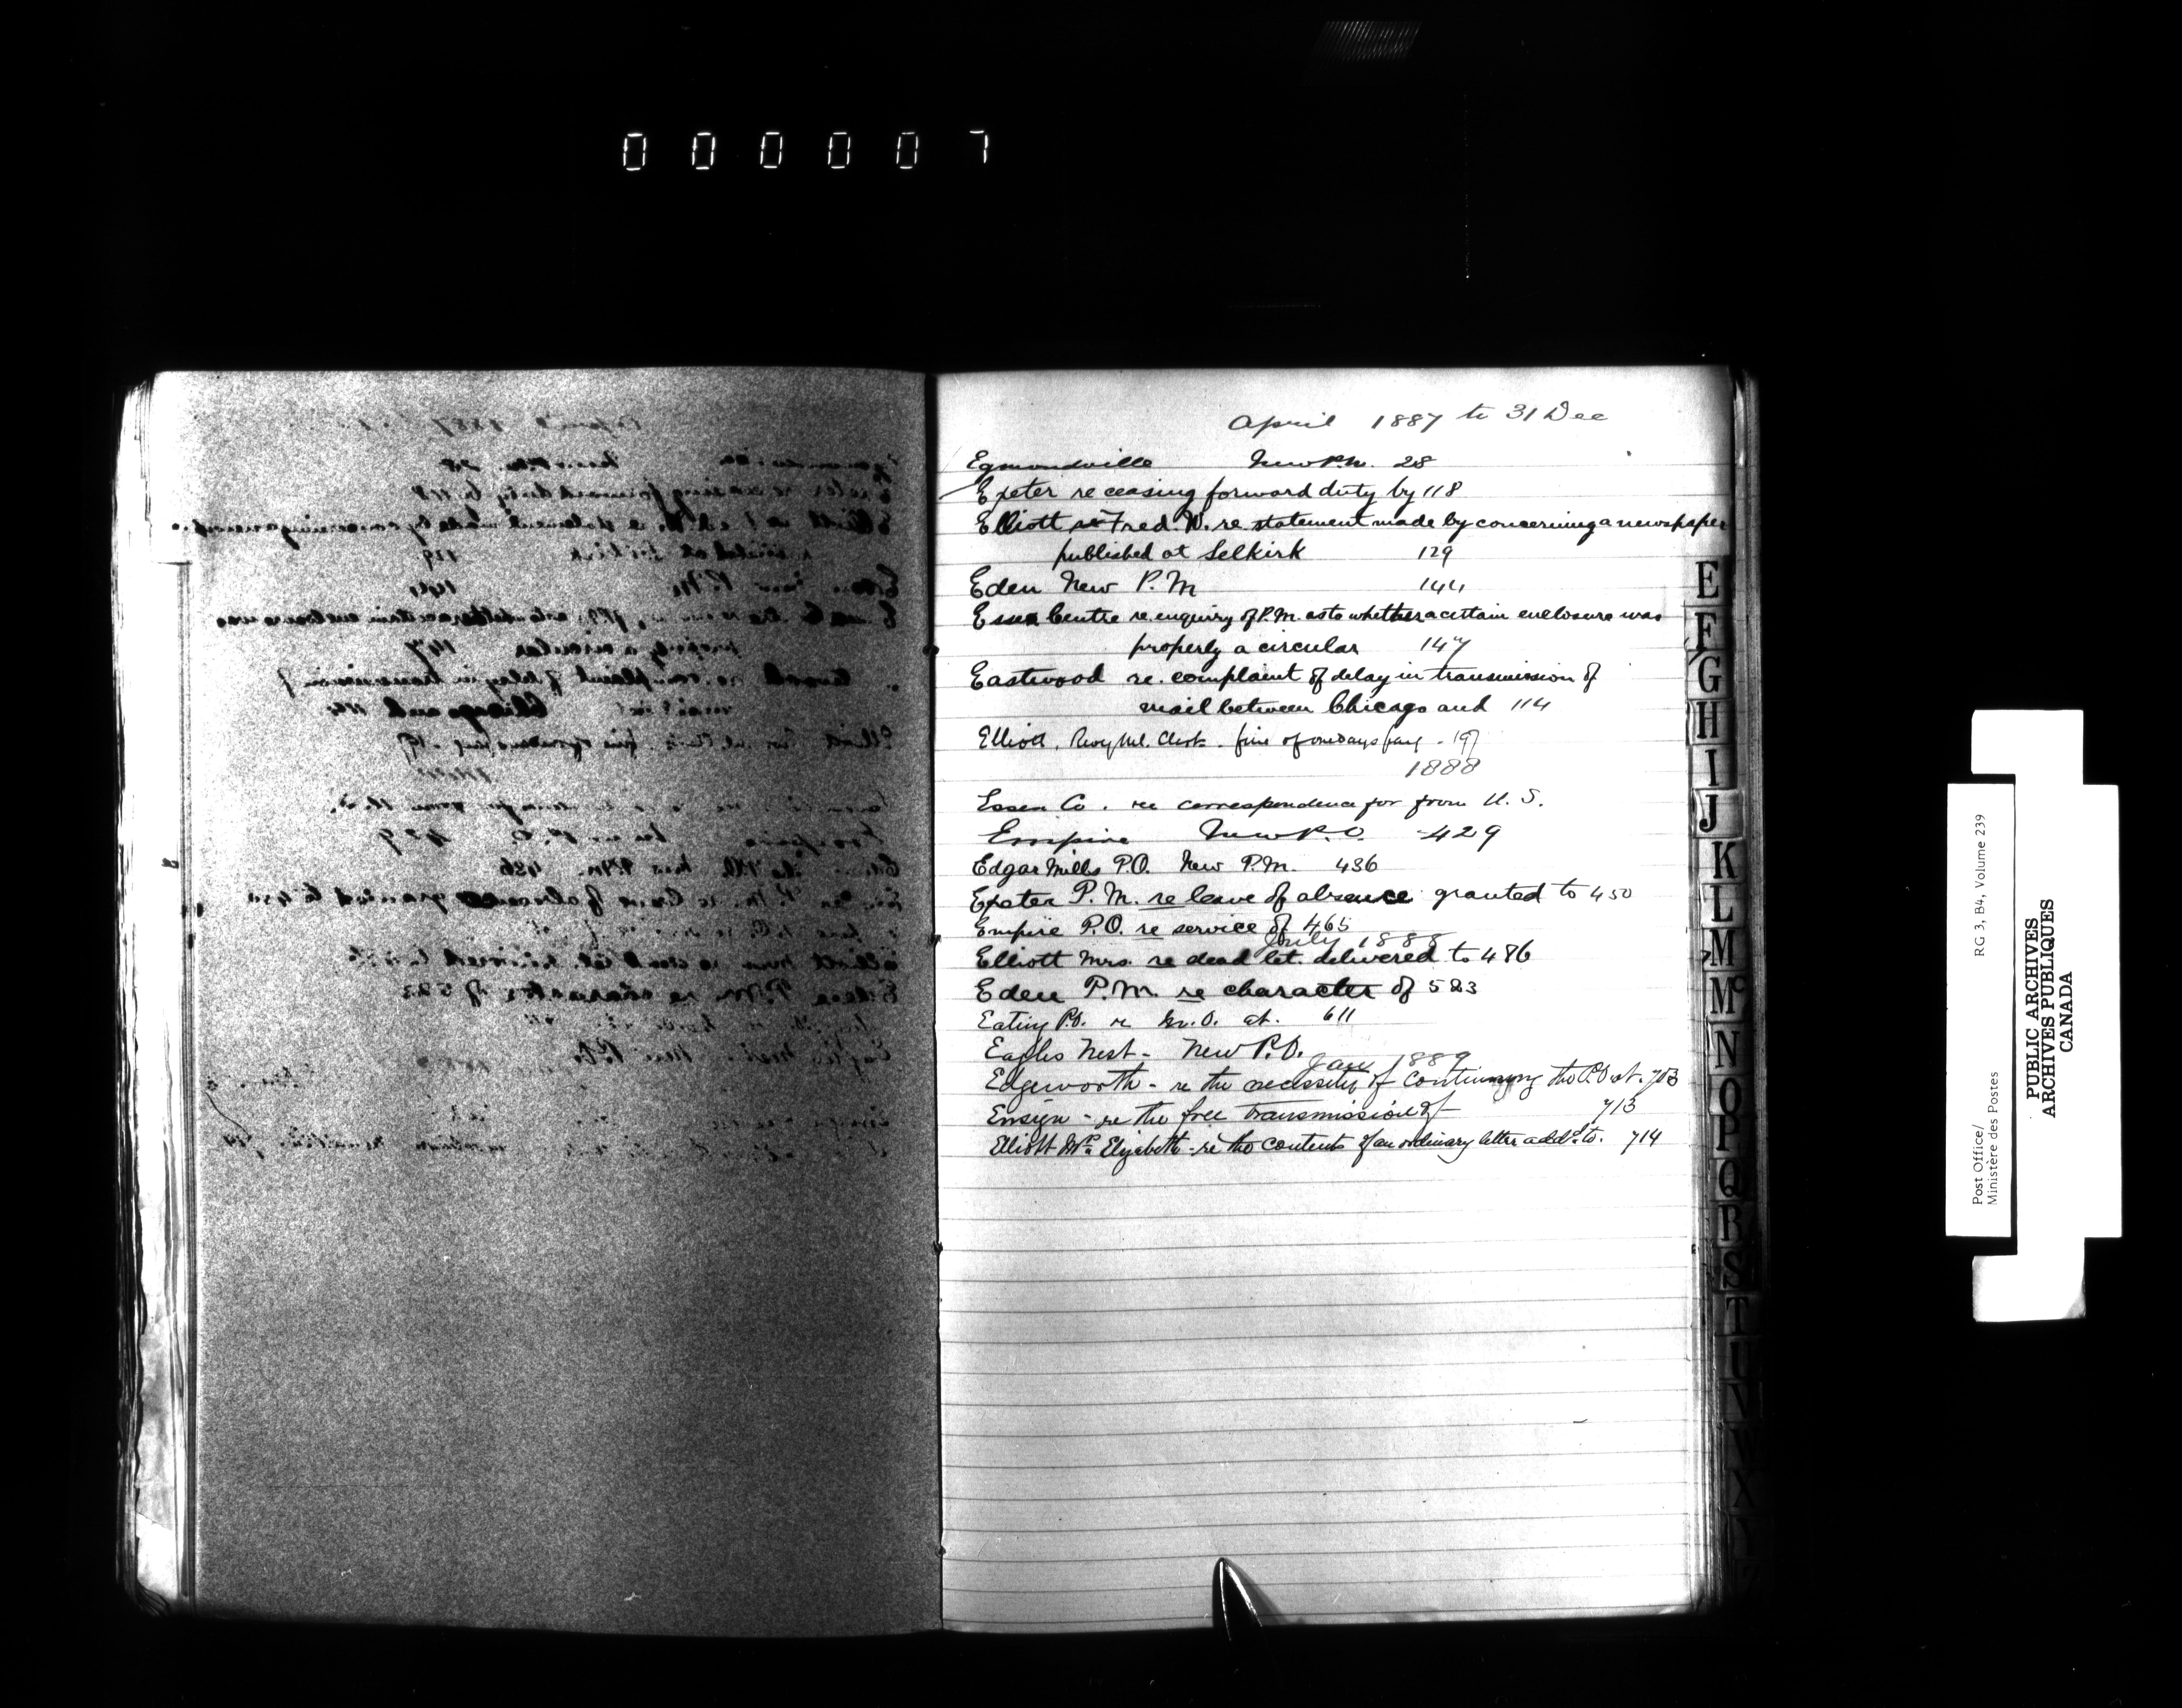 000007
April 1887 to 31 Dec
Egmondville New P.M. 28
Exeter re ceasing forward duty by 118
Elliott Fred. W. re statement made by concerning a newspaper
published at Selkirk 129
Eden New P.M 144
Essex Centre re. enquiry of P.M. as to whether a certain enclosure was
properly a circular 147
Eastwood re. complaint of delay in transmission of
mail between Chicago and 114
Elliott, Rwy Ml. Clerk. fine of one days pay - 197
1888
Essex Co. re correspondence for from U.S.
Empire New P.O. 429
Edgar Mills P.O. New P.M. 436
Exeter P.M. re leave of absence granted to 450
Empire P.O. re service of 465
July 1888
Elliott Mrs. re dead let. delivered to 486
Eden P.M. re character of 523
P.O. re M.O. at. 611
Eagles Nest - New P.O.
Jany 1889
Edgeworth - re the necessity of continuing the P.O at. 703
Ensign - re the free transmission of 713
Elliott Mrs Elizabeth - re the contents of an ordinary letter addd to. 714
E
F
G
H
I
J
K
L
M
Mc
N
O
P
Q
R
S
T
U
V
W
X
Y
Z
Post Office/
Ministère des Postes
RG 3, B4, Volume 239
PUBLIC ARCHIVES
ARCHIVES PUBLIQUES
CANADA